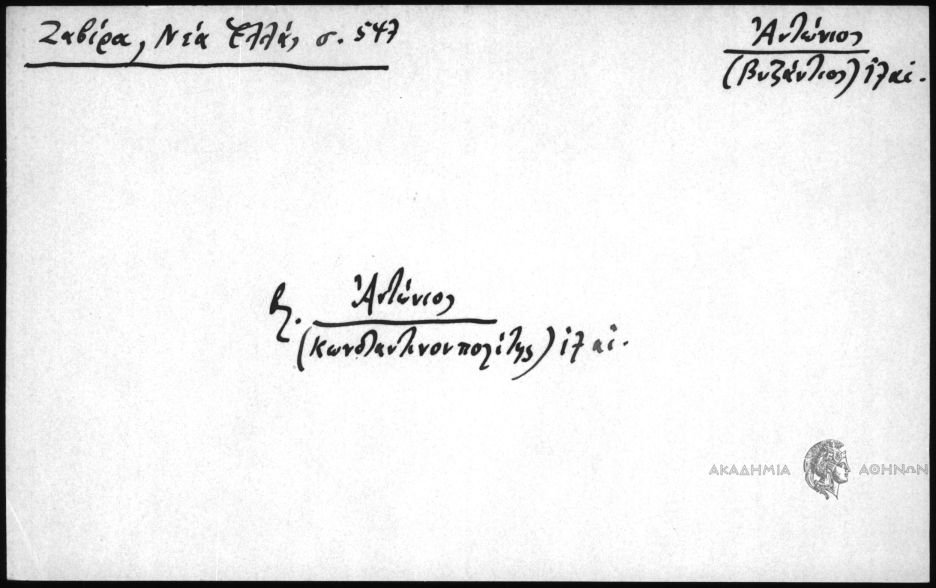 Ζαβίρα, Νέα Ἑλλάς σ. 547
Ἀντώνιος
(Βυζάντιος) 17 αἰ.
βλ. Ἀντώνιος
(Κωνσταντινουπολίτης) 17 αἰ.
ΑΚΑΔΗΜΙΑ ΑΘΗΝΩΝ